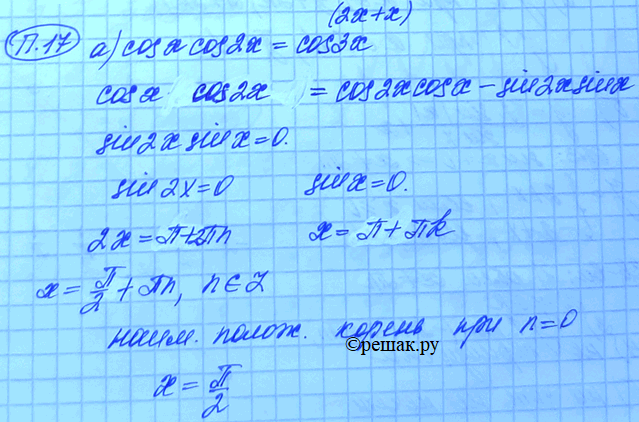 (2x+x)
П.17 а) cosx cos2x = cos3x
cosx cos2x = cos2x cosx − sin2x sinx
sin2x sinx = 0.
sin2x = 0 sinx = 0.
2x = π + 2πn x = π + πk
x = π/2 + πn, n ∈ Z
наим. полож. корень при n = 0
©решак.ру
x = π/2